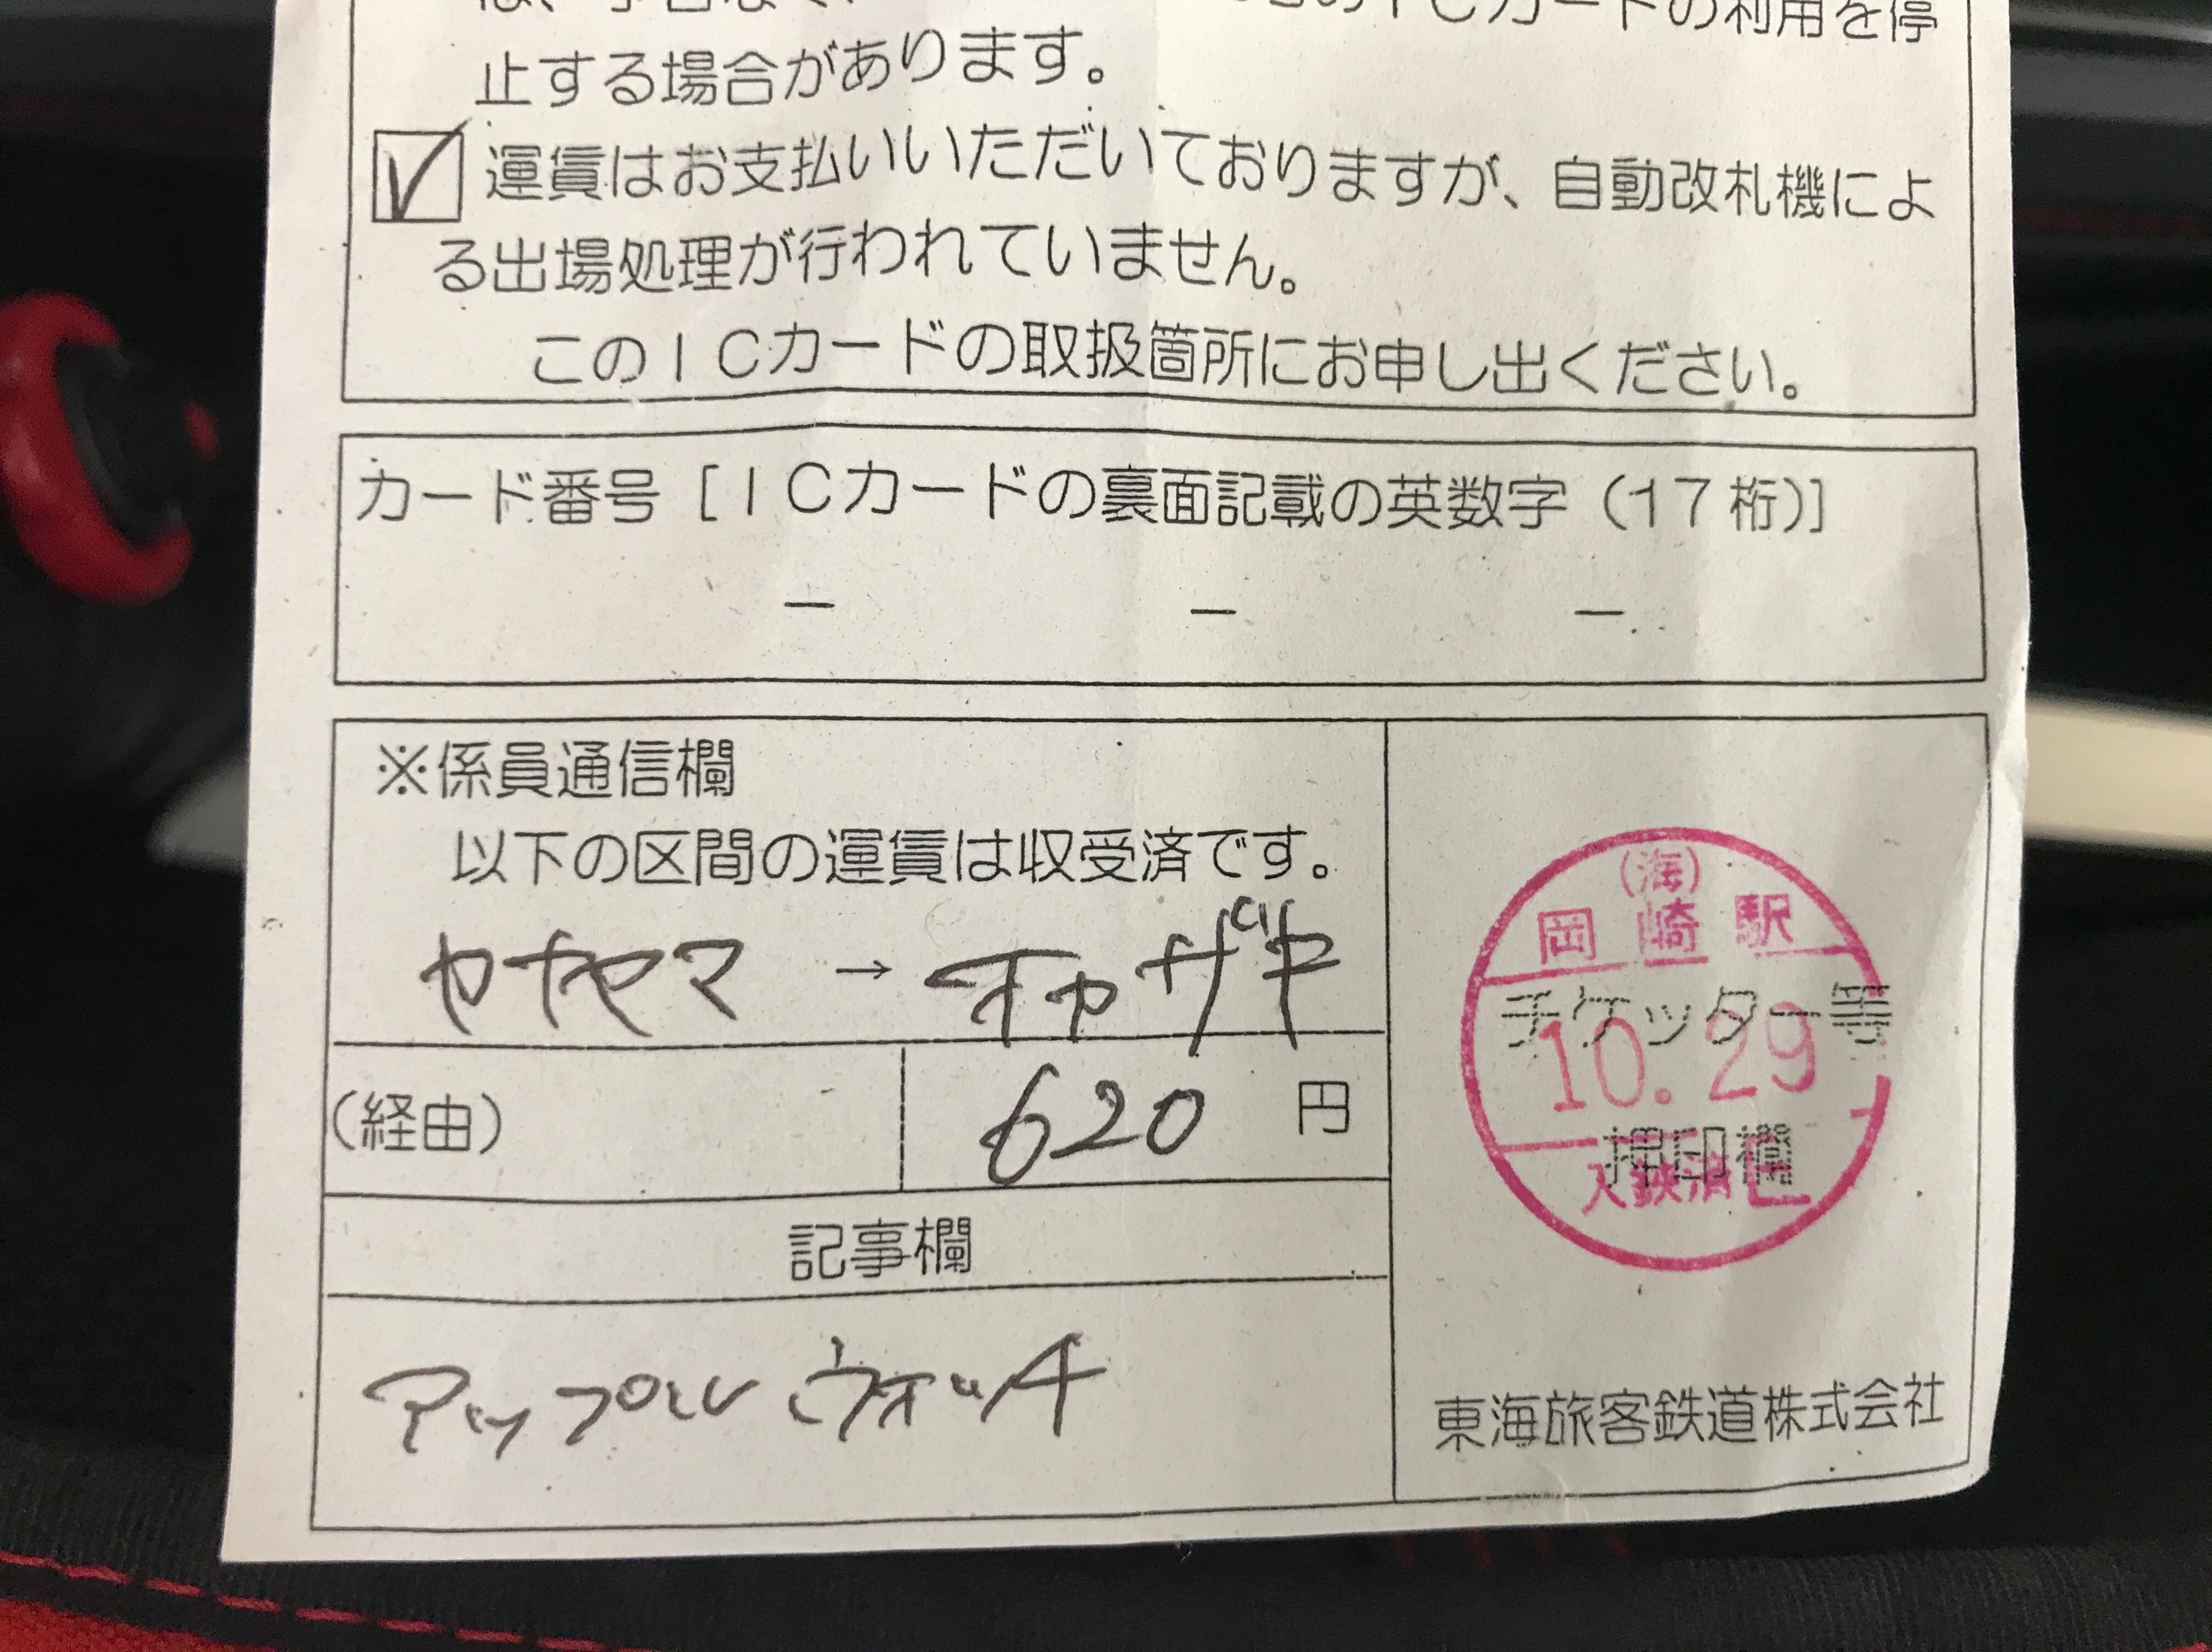 のICカードの利用を停
止する場合があります。
運賃はお支払いいただいておりますが、自動改札機によ
る出場処理が行われていません。
このICカードの取扱箇所にお申し出ください。
カード番号［ICカードの裏面記載の英数字（17桁）］
－　－　－
※係員通信欄
以下の区間の運賃は収受済です。
カナヤマ → オカザキ
（経由） 620 円
記事欄
アップルウォッチ
(海)
岡崎駅
チケッター等
10.29
押印欄
入鋏済
東海旅客鉄道株式会社